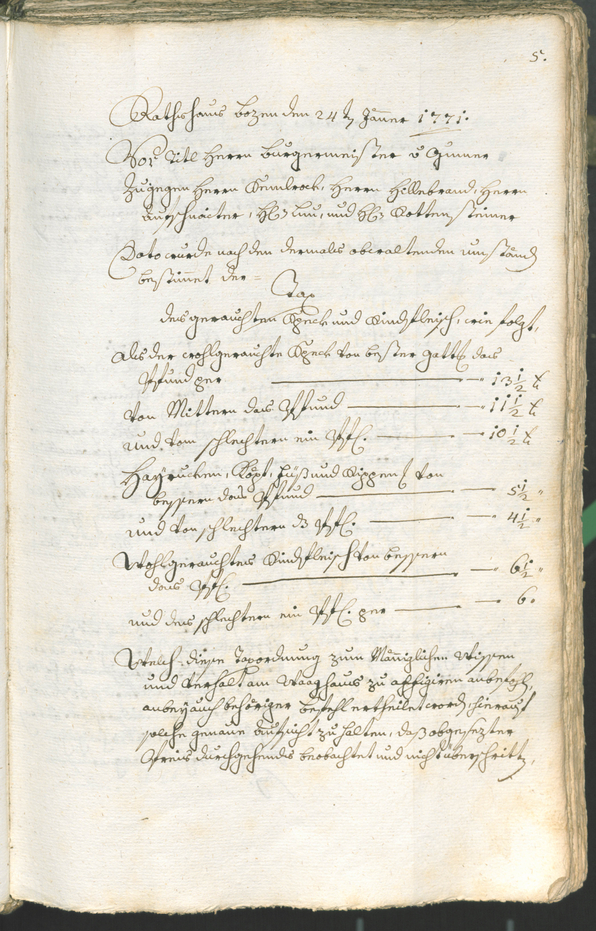 5.
Rathshaus Bozen den 24t Jäner 1771.
Vor Titl Herrn Burgermeister v Gumer
zugegen Herrn Kemlrock, Herrn Hillebrand, Herrn
Aufschnaiter, H: Lun, und H: Rottensteiner
Dato wurde nach den dermalls obwaltenden umständ
bestimet der=
Tax
des gerauchten Speck und Rindfleisch, wie folgt,
Als der wohlgerauchte Speck von bester gattg das
Pfund per 13½ x
von Mittern das Pfund 11½ x
und vom schlechtern ein Pf. 10½ x
Hayrucken, Köpf, Füß und Rippen von
bessern das Pfund 5½ "
und von schlechtern ds Pf. 4½ "
Wohlgerauchtes Rindfleisch von bessern
das Pf. 6½ "
und des schlechtern ein Pf. per 6.
Welch-diese Taxordnung zum Mäniglichen Wissen
und Verhalt am Waaghaus zu affigiren anbefohl,
anbey auch behöriger befehl ertheilet word, hierauf
solche genaue Aufsicht zu halten, daß obgesezter
Preis durchgehends beobachtet und nicht überschritt,